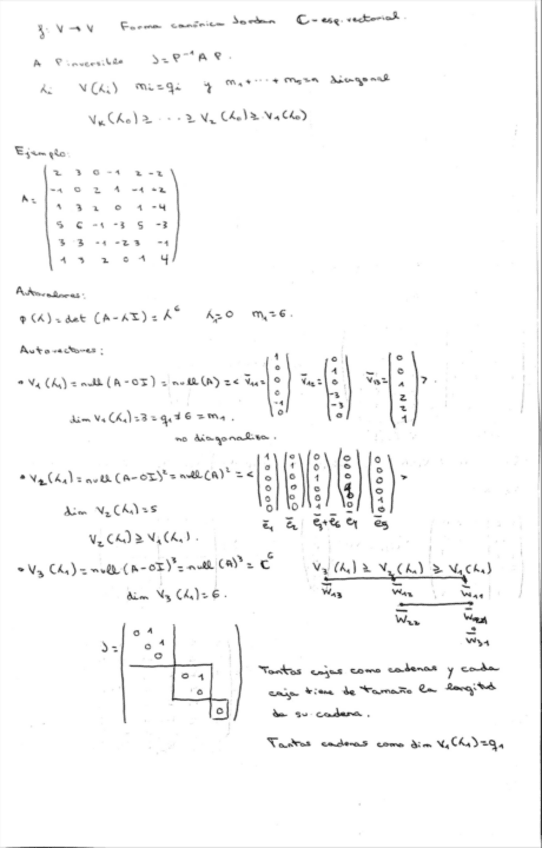 f: V → V Forma canónica Jordan C-esp. vectorial.
A P inversible J = P⁻¹ A P.
λi V(λi) mi = gi y m1 + ··· + ms = n diagonal
VK(λ0) ≥ ··· ≥ V2(λ0) ≥ V1(λ0)
Ejemplo:
A =
2 3 0 -1 2 -2
-1 0 2 1 -1 -2
1 3 2 0 1 -4
5 6 -1 -3 5 -3
3 3 -1 -2 3 -1
1 3 2 0 1 4
Autovalores:
φ(λ) = det (A-λI) = λ⁶ λ1 = 0 m1 = 6.
Autovectores:
• V1(λ1) = null(A-0I) = null(A) = < v̄11 = (1 0 0 0 -1 0) v̄12 = (0 1 0 -3 -3 0) v̄13 = (0 0 1 2 2 1) >.
dim V1(λ1) = 3 = g1 ≠ 6 = m1.
no diagonaliza.
• V2(λ1) = null(A-0I)² = null(A)² = < (1 0 0 0 0 0) (0 1 0 0 0 0) (0 0 1 0 0 1) (0 0 0 0 0) (0 0 0 0 1 0) >
ē1 ē2 ē3+ē6 ē4 ē5
dim V2(λ1) = 5
V2(λ1) ≥ V1(λ1).
• V3(λ1) = null(A-0I)³ = null(A)³ = C⁶ V3(λ1) ≥ V2(λ1) ≥ V1(λ1)
dim V3(λ1) = 6.
w̄13 w̄12 w̄11
w̄22 w̄21
w̄31
J =
0 1
0 1
0
0 1
0
0
Tantas cajas como cadenas y cada
caja tiene de tamaño la longitud
de su cadena.
Tantas cadenas como dim V1(λ1) = g1